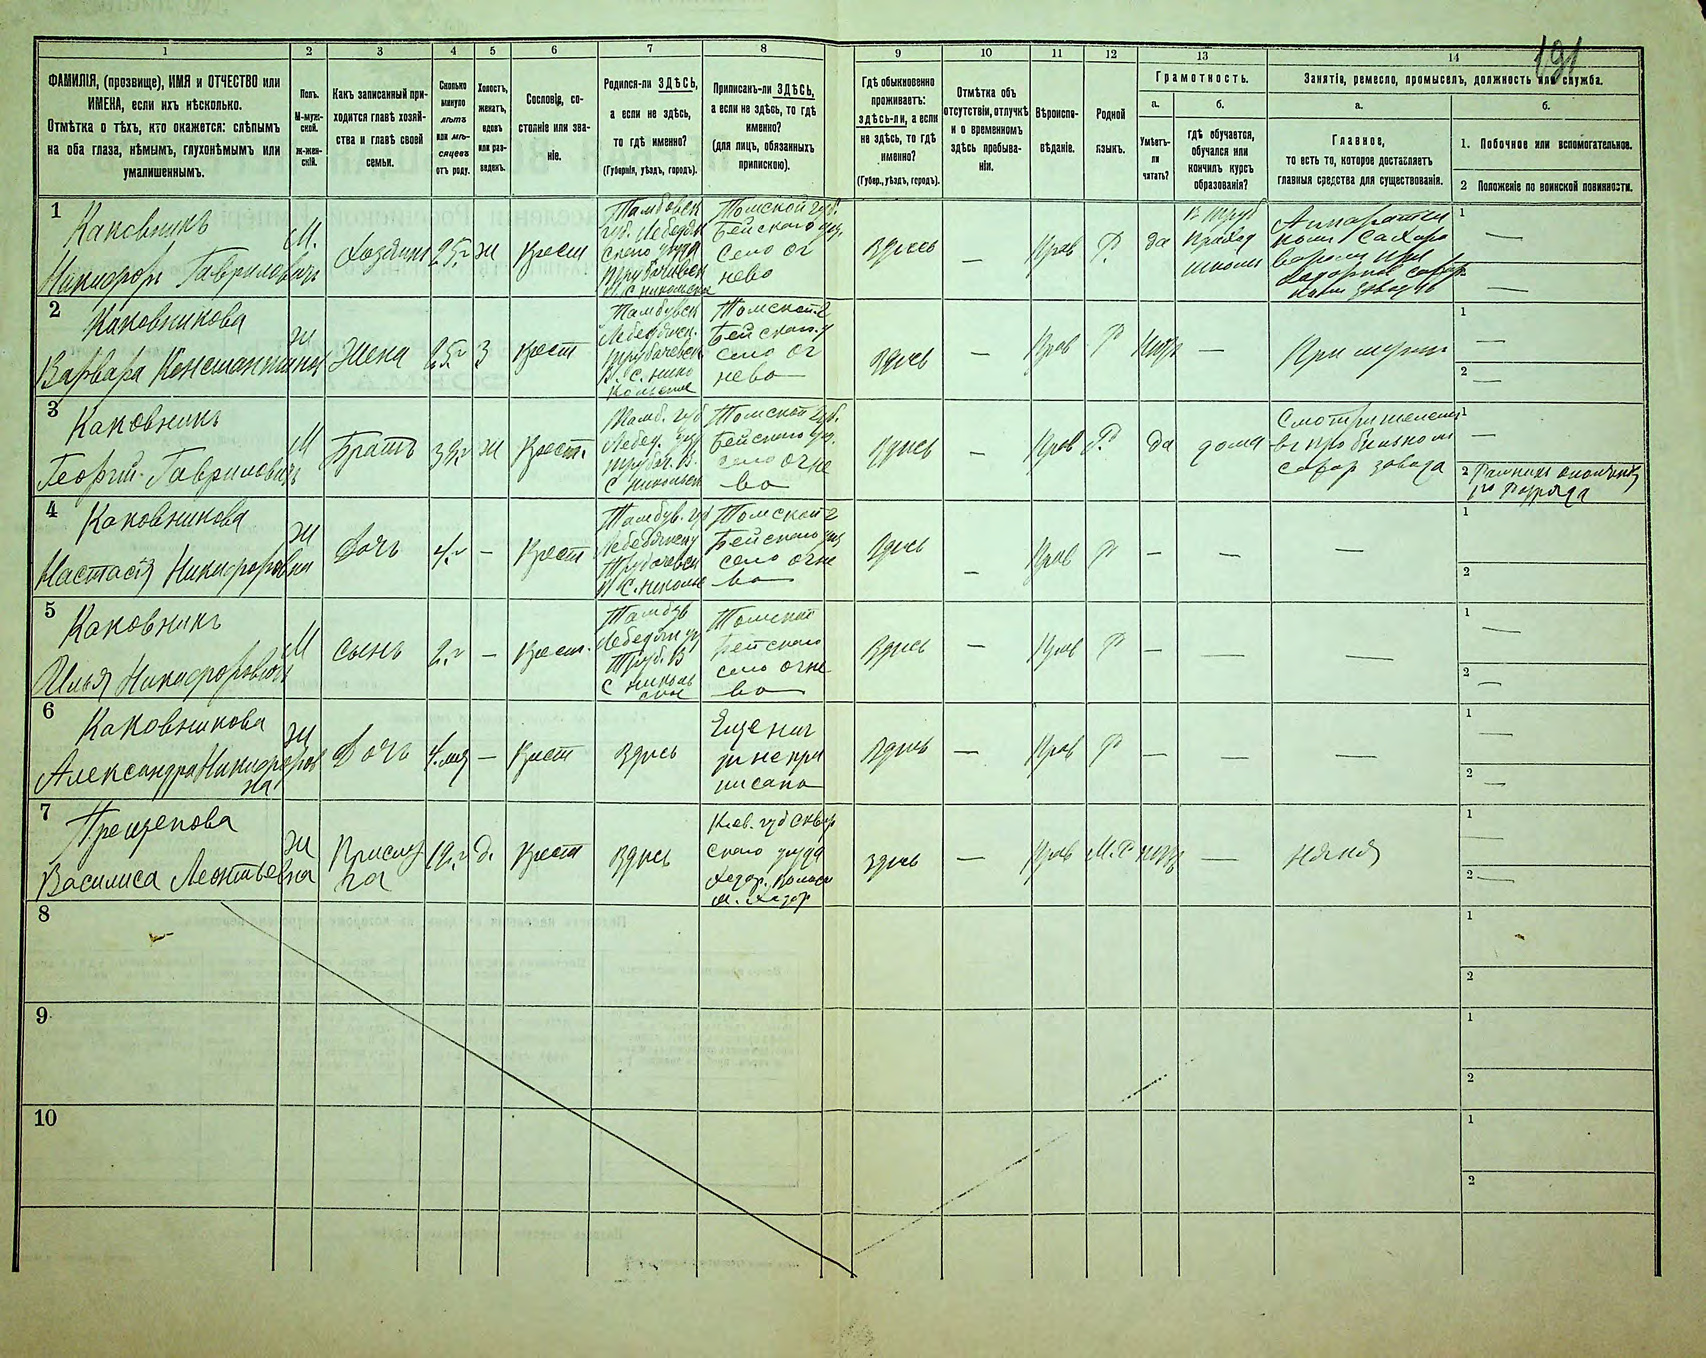 191
1
2
3
4
5
6
7
8
9
10
11
12
13
14
ФАМИЛІЯ, (прозвище), ИМЯ и ОТЧЕСТВО или
ИМЕНА, если ихъ нѣсколько.
Отмѣтка о тѣхъ, кто окажется: слѣпымъ
на оба глаза, нѣмымъ, глухонѣмымъ или
умалишеннымъ.
Полъ.
М-муж-
ской.
ж-жен-
скій.
Какъ записанный при-
ходится главѣ хозяй-
ства и главѣ своей
семьи.
Сколько
минуло
лѣтъ
или мѣ-
сяцевъ
отъ роду.
Холостъ,
женатъ,
вдовъ
или раз-
веденъ.
Сословіе, со-
стояніе или зва-
ніе.
Родился-ли ЗДѢСЬ,
а если не здѣсь,
то гдѣ именно?
(Губернія, уѣздъ, городъ).
Приписанъ-ли ЗДѢСЬ,
а если не здѣсь, то гдѣ
именно?
(для лицъ, обязанныхъ
припискою).
Гдѣ обыкновенно
проживаетъ:
здѣсь-ли, а если
не здѣсь, то гдѣ
именно?
(Губер., уѣздъ, городъ).
Отмѣтка объ
отсутствіи, отлучкѣ
и о временномъ
здѣсь пребыва-
ніи.
Вѣроиспо-
вѣданіе.
Родной
языкъ.
Грамотность.
а.
б.
Умѣетъ-
ли
читать?
гдѣ обучается,
обучался или
кончилъ курсъ
образованія?
Занятіе, ремесло, промыселъ, должность или служба.
а.
б.
Главное,
то есть то, которое доставляетъ
главныя средства для существованія.
1. Побочное или вспомогательное.
2 Положеніе по воинской повинности.
1
Каковникъ
Никифоръ Гавриловичъ
М.
Хозяинъ
25 г
Ж
Крест
Тамбовск
губ. Лебедян
скаго уѣзда
Томской губ.
Бейскаго уѣз.
село Ог
нево
Здѣсь
—
Прав
Р.
да
школы
1
—
—
2
Каковникова
Варвара Константиновна
Ж
Жена
25 г
З
Крест
Тамбовск
Лебедянск.
Трубачевск
В. с. Нико
льское
Томской г
Бейскаго. у
село Ог
нево
Здѣсь
—
Прав
Р
—
При мужѣ
1
—
2
—
3
Каковникъ
Георгій Гавриловичъ
М
Братъ
Ж
Крест.
Тамб. губ
Лебед. уѣз
Трубач. В.
с Никольск
Томской губ.
Бейскаго уѣз.
село Огне
во
Здѣсь
—
Прав
Р
да
дома
сахар завода
1
—
2
разряда
4
Каковникова
Настасія Никифоровна
Ж
Дочь
4. г
—
Крест
Тамбов. губ
Лебедянску
Трубачевск
В с. Николь
Томской г
Бейскаго уѣз
село Огне
во
Здѣсь
—
Прав
Р
—
—
—
1
2
5
Каковникъ
Илья Никифоровичъ
М
Сынъ
2. г
—
Крест.
Тамбов
Лебедян уѣ
Труб. В
с Николь
ское
Томской
Бейскаго
село Огне
во
Здѣсь
—
Прав
Р
—
—
—
1
—
2
—
6
Каковникова
Александра Никифоров
на
Ж
Дочь
4. мѣс
—
Крест
Здѣсь
Еще ниг
дѣ не при
писана
Здѣсь
—
Прав
Р
—
—
—
1
—
2
—
7
Прещепова
Василиса Леонтьевна
Ж
Прислу
га
д.
Крест
Здѣсь
Кіев. губ Сквир
скаго уѣзда
Здѣсь
—
Прав
М.Р
—
Няня
1
—
2
—
8
1
2
9
1
2
10
1
2